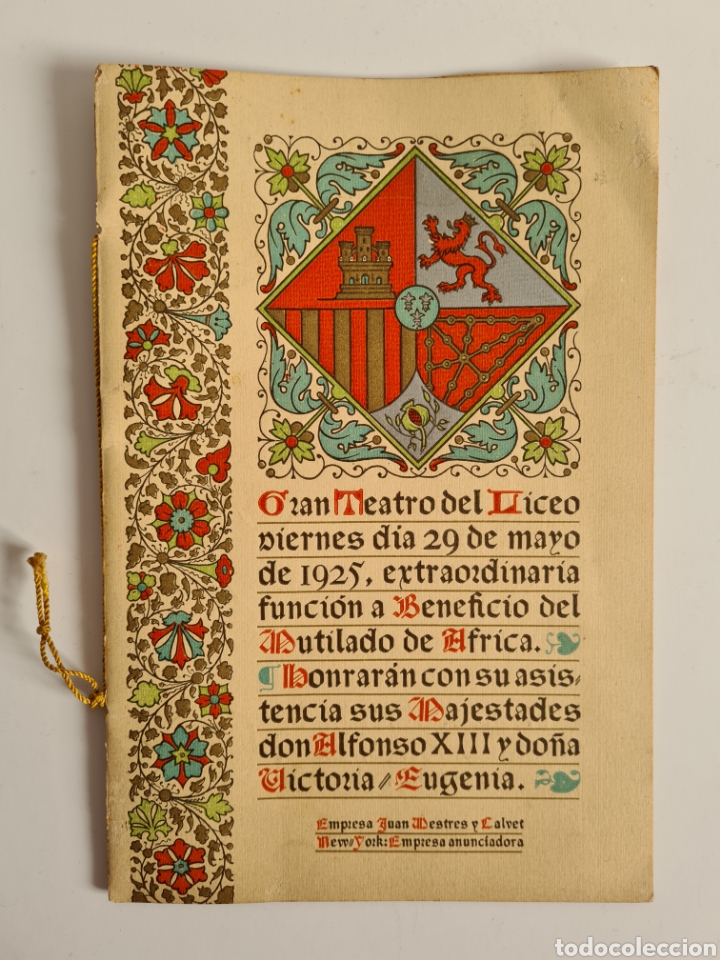 Gran Teatro del Liceo
viernes día 29 de mayo
de 1925, extraordinaria
función a Beneficio del
Mutilado de Africa.
¶ Honrarán con su asis⸗
tencia sus Majestades
don Alfonso XIII y doña
Victoria⸗Eugenia.
Empresa Juan Mestres y Calvet
New⸗York: Empresa anunciadora
todocoleccion